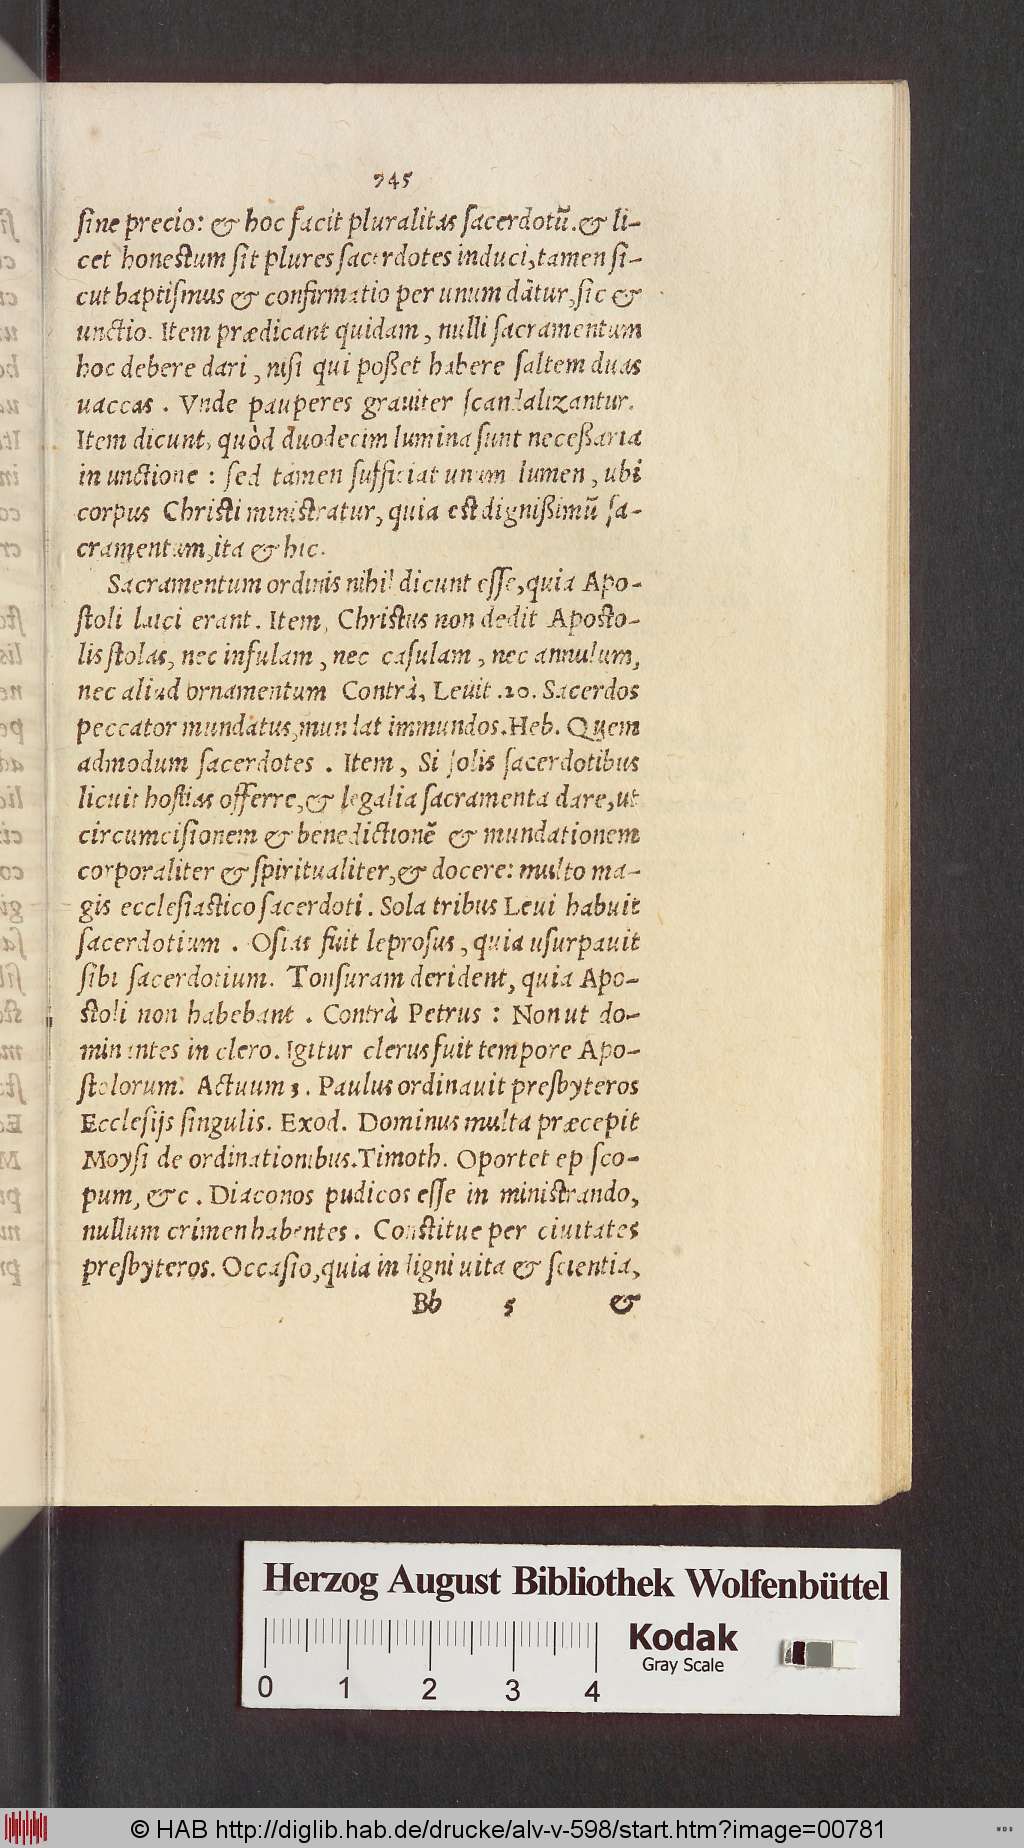 745
ſine precio: & hoc facit pluralitas ſacerdotū. & li-
cet honeſtum ſit plures ſacerdotes induci, tamen ſi-
cut baptiſmus & confirmatio per unum dātur, ſic &
unctio. Item prædicant quidam, nulli ſacramentum
hoc debere dari, niſi qui poßet habere ſaltem duas
uaccas. Vnde pauperes grauiter ſcandalizantur.
Item dicunt, quòd duodecim lumina ſunt neceßaria
in unctione: ſed tamen ſufficiat unum lumen, ubi
corpus Chriſti miniſtratur, quia eſt dignißimū ſa-
cramentum, ita & hic.
Sacramentum ordinis nihil dicunt eſſe, quia Apo-
ſtoli laici erant. Item, Chriſtus non dedit Apoſto-
lis ſtolas, nec infulam, nec caſulam, nec annulum,
nec aliud ornamentum Contrà, Leuit. 20. Sacerdos
peccator mundatus, mundat immundos. Heb. Quem
admodum ſacerdotes. Item, Si ſolis ſacerdotibus
licuit hoſtias offerre, & legalia ſacramenta dare, ut
circumciſionem & benedictionē & mundationem
corporaliter & ſpiritualiter, & docere: multo ma-
gis eccleſiaſtico ſacerdoti. Sola tribus Leui habuit
ſacerdotium. Oſias fuit leproſus, quia uſurpauit
ſibi ſacerdotium. Tonſuram derident, quia Apo-
ſtoli non habebant. Contrà Petrus: Non ut do-
minantes in clero. Igitur clerus fuit tempore Apo-
ſtolorum. Actuum 3. Paulus ordinauit preſbyteros
Eccleſijs ſingulis. Exod. Dominus multa præcepit
Moyſi de ordinationibus. Timoth. Oportet epſco-
pum, &c. Diaconos pudicos eſſe in miniſtrando,
nullum crimen habentes. Conſtitue per ciuitates
preſbyteros. Occaſio, quia indigni uita & ſcientia,
Bb 5 &
Herzog August Bibliothek Wolfenbüttel
Kodak
Gray Scale
0 1 2 3 4
© HAB http://diglib.hab.de/drucke/alv-v-598/start.htm?image=00781